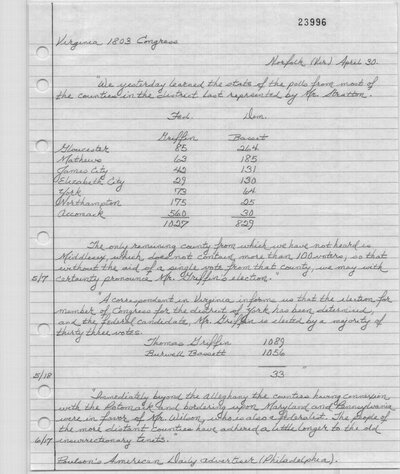 23996
Virginia 1803 Congress
Norfolk (Vir) April 30.
"We yesterday learned the state of the polls from most of
the counties in the district last represented by Mr. Stratton.
Fed. Dem.
Griffin Basset
Gloucester 85 264
Mathews 63 185
James City 42 131
Elizabeth City 29 130
York 73 64
Northampton 175 25
Accomack 560 30
1027 829
The only remaining county from which we have not heard is
Middlesex, which does not contain more than 100 voters, so that
without the aid of a single vote from that county, we may with
5/7 certainty pronounce Mr. Griffin's election."
"A correspondent in Virginia informs us that the election for
member of Congress for the district of York has been determined,
and the federal candidate, Mr. Griffin is elected by a majority of
thirty three votes.
Thomas Griffin 1089
Burwell Bassett 1056
5/18 33 "
"Immediately beyond the alleghany the counties having connexion
with the Potomak and bordering upon Maryland and Pennsylvania
were in favor of Mr. Wilson, who is also a federalist. The people of
the more distant counties have adhered a little longer to the old
6/17 insurrectionary tenets."
Poulson's American Daily advertiser (Philadelphia).